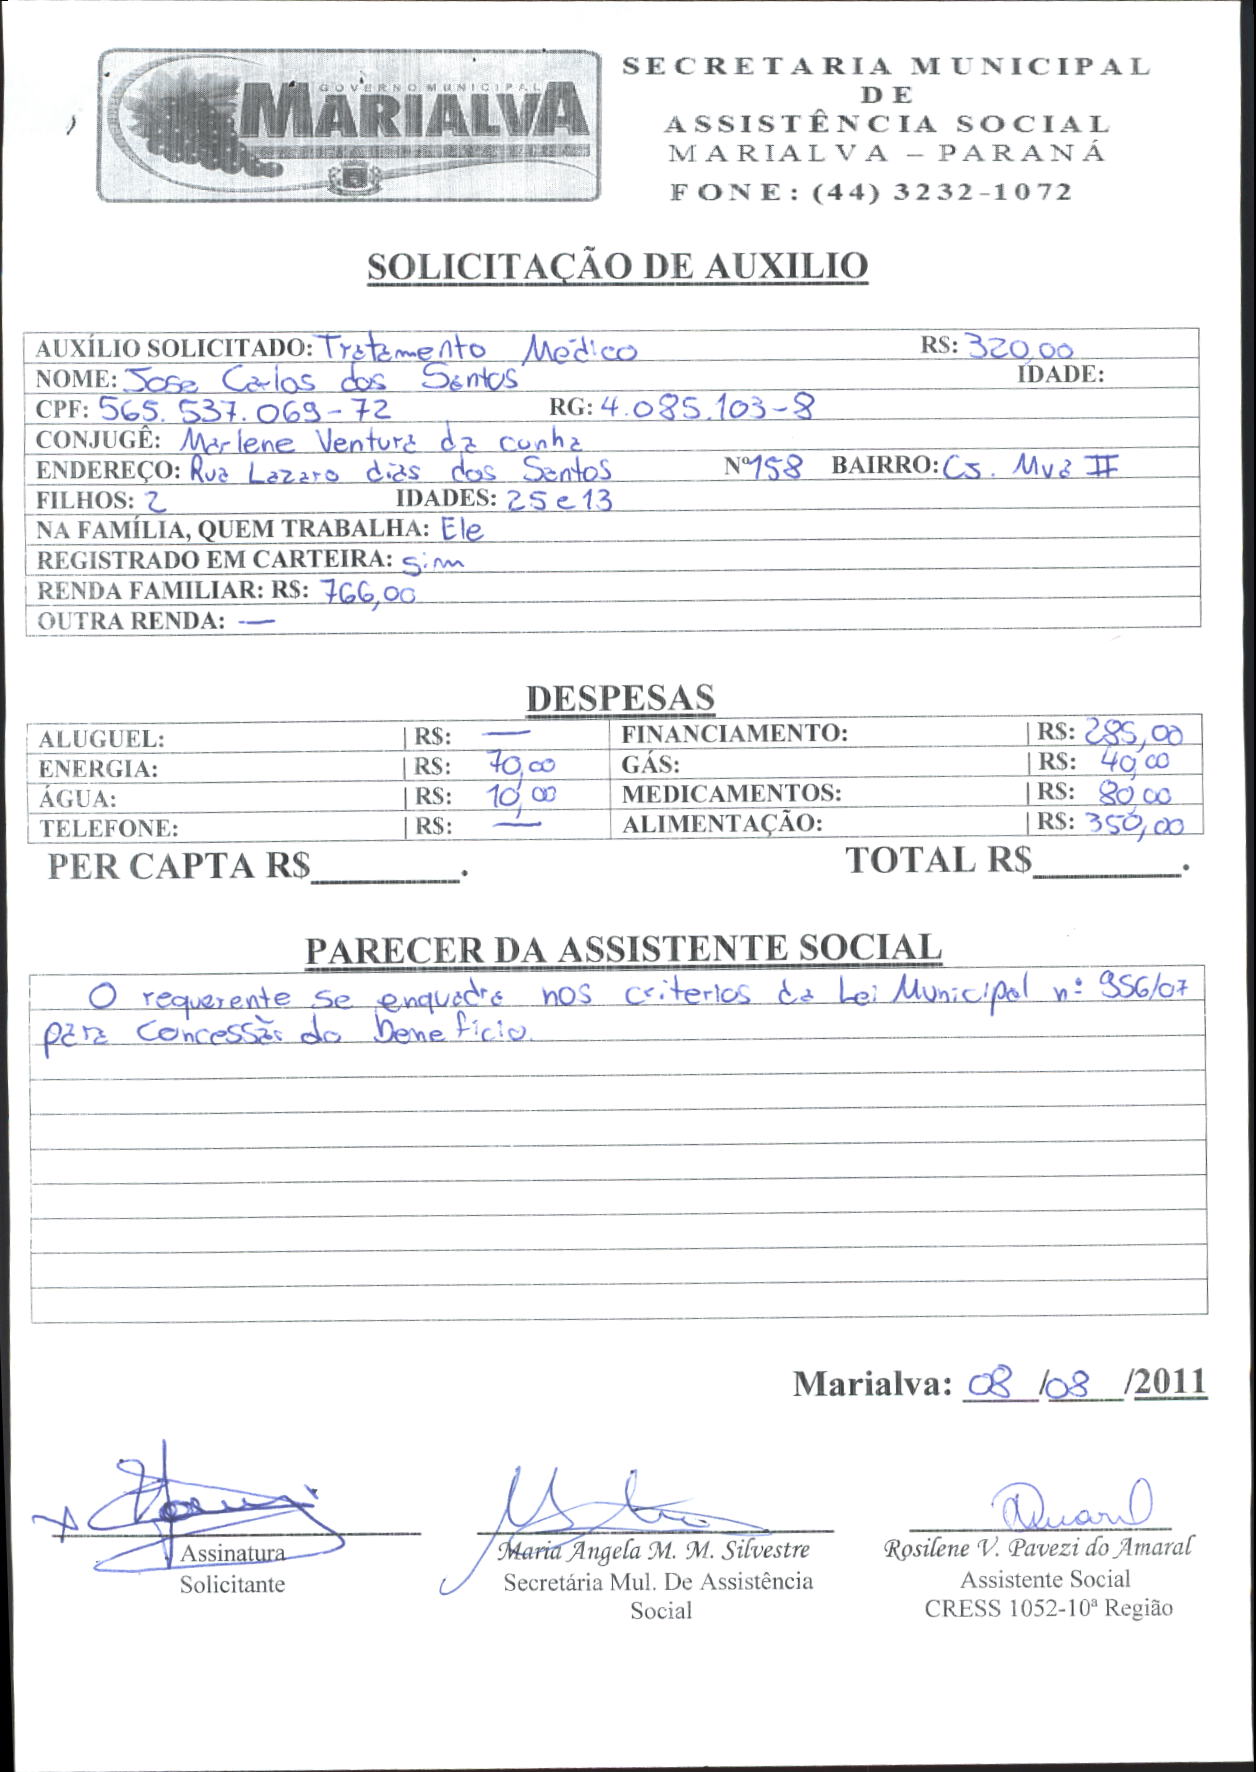 GOVERNO MUNICIPAL
MARIALVA
SECRETARIA MUNICIPAL
DE
ASSISTÊNCIA SOCIAL
MARIALVA – PARANÁ
FONE: (44) 3232-1072
SOLICITAÇÃO DE AUXILIO
AUXÍLIO SOLICITADO: Tratamento Médico R$: 320,00
NOME: Jose Carlos dos Santos IDADE:
CPF: 565.537.069-72 RG: 4.085.103-8
CONJUGÊ: Marlene Ventura da cunha
ENDEREÇO: Rua Lazaro dias dos Santos Nº 158 BAIRRO: Cj. Mva II
FILHOS: 2 IDADES: 25 e 13
NA FAMÍLIA, QUEM TRABALHA: Ele
REGISTRADO EM CARTEIRA: sim
RENDA FAMILIAR: R$: 766,00
OUTRA RENDA: —
DESPESAS
ALUGUEL: | R$: — FINANCIAMENTO: | R$: 285,00
ENERGIA: | R$: 70,00 GÁS: | R$: 40,00
ÁGUA: | R$: 10,00 MEDICAMENTOS: | R$: 80,00
TELEFONE: | R$: — ALIMENTAÇÃO: | R$: 350,00
PER CAPTA R$________. TOTAL R$________.
PARECER DA ASSISTENTE SOCIAL
O requerente se enquadra nos criterios da Lei Municipal nº 956/07
para concessão do beneficio.
Marialva: 08 /08 /2011
Assinatura
Solicitante
Maria Angela M. M. Silvestre
Secretária Mul. De Assistência
Social
Rosilene V. Pavezi do Amaral
Assistente Social
CRESS 1052-10ª Região